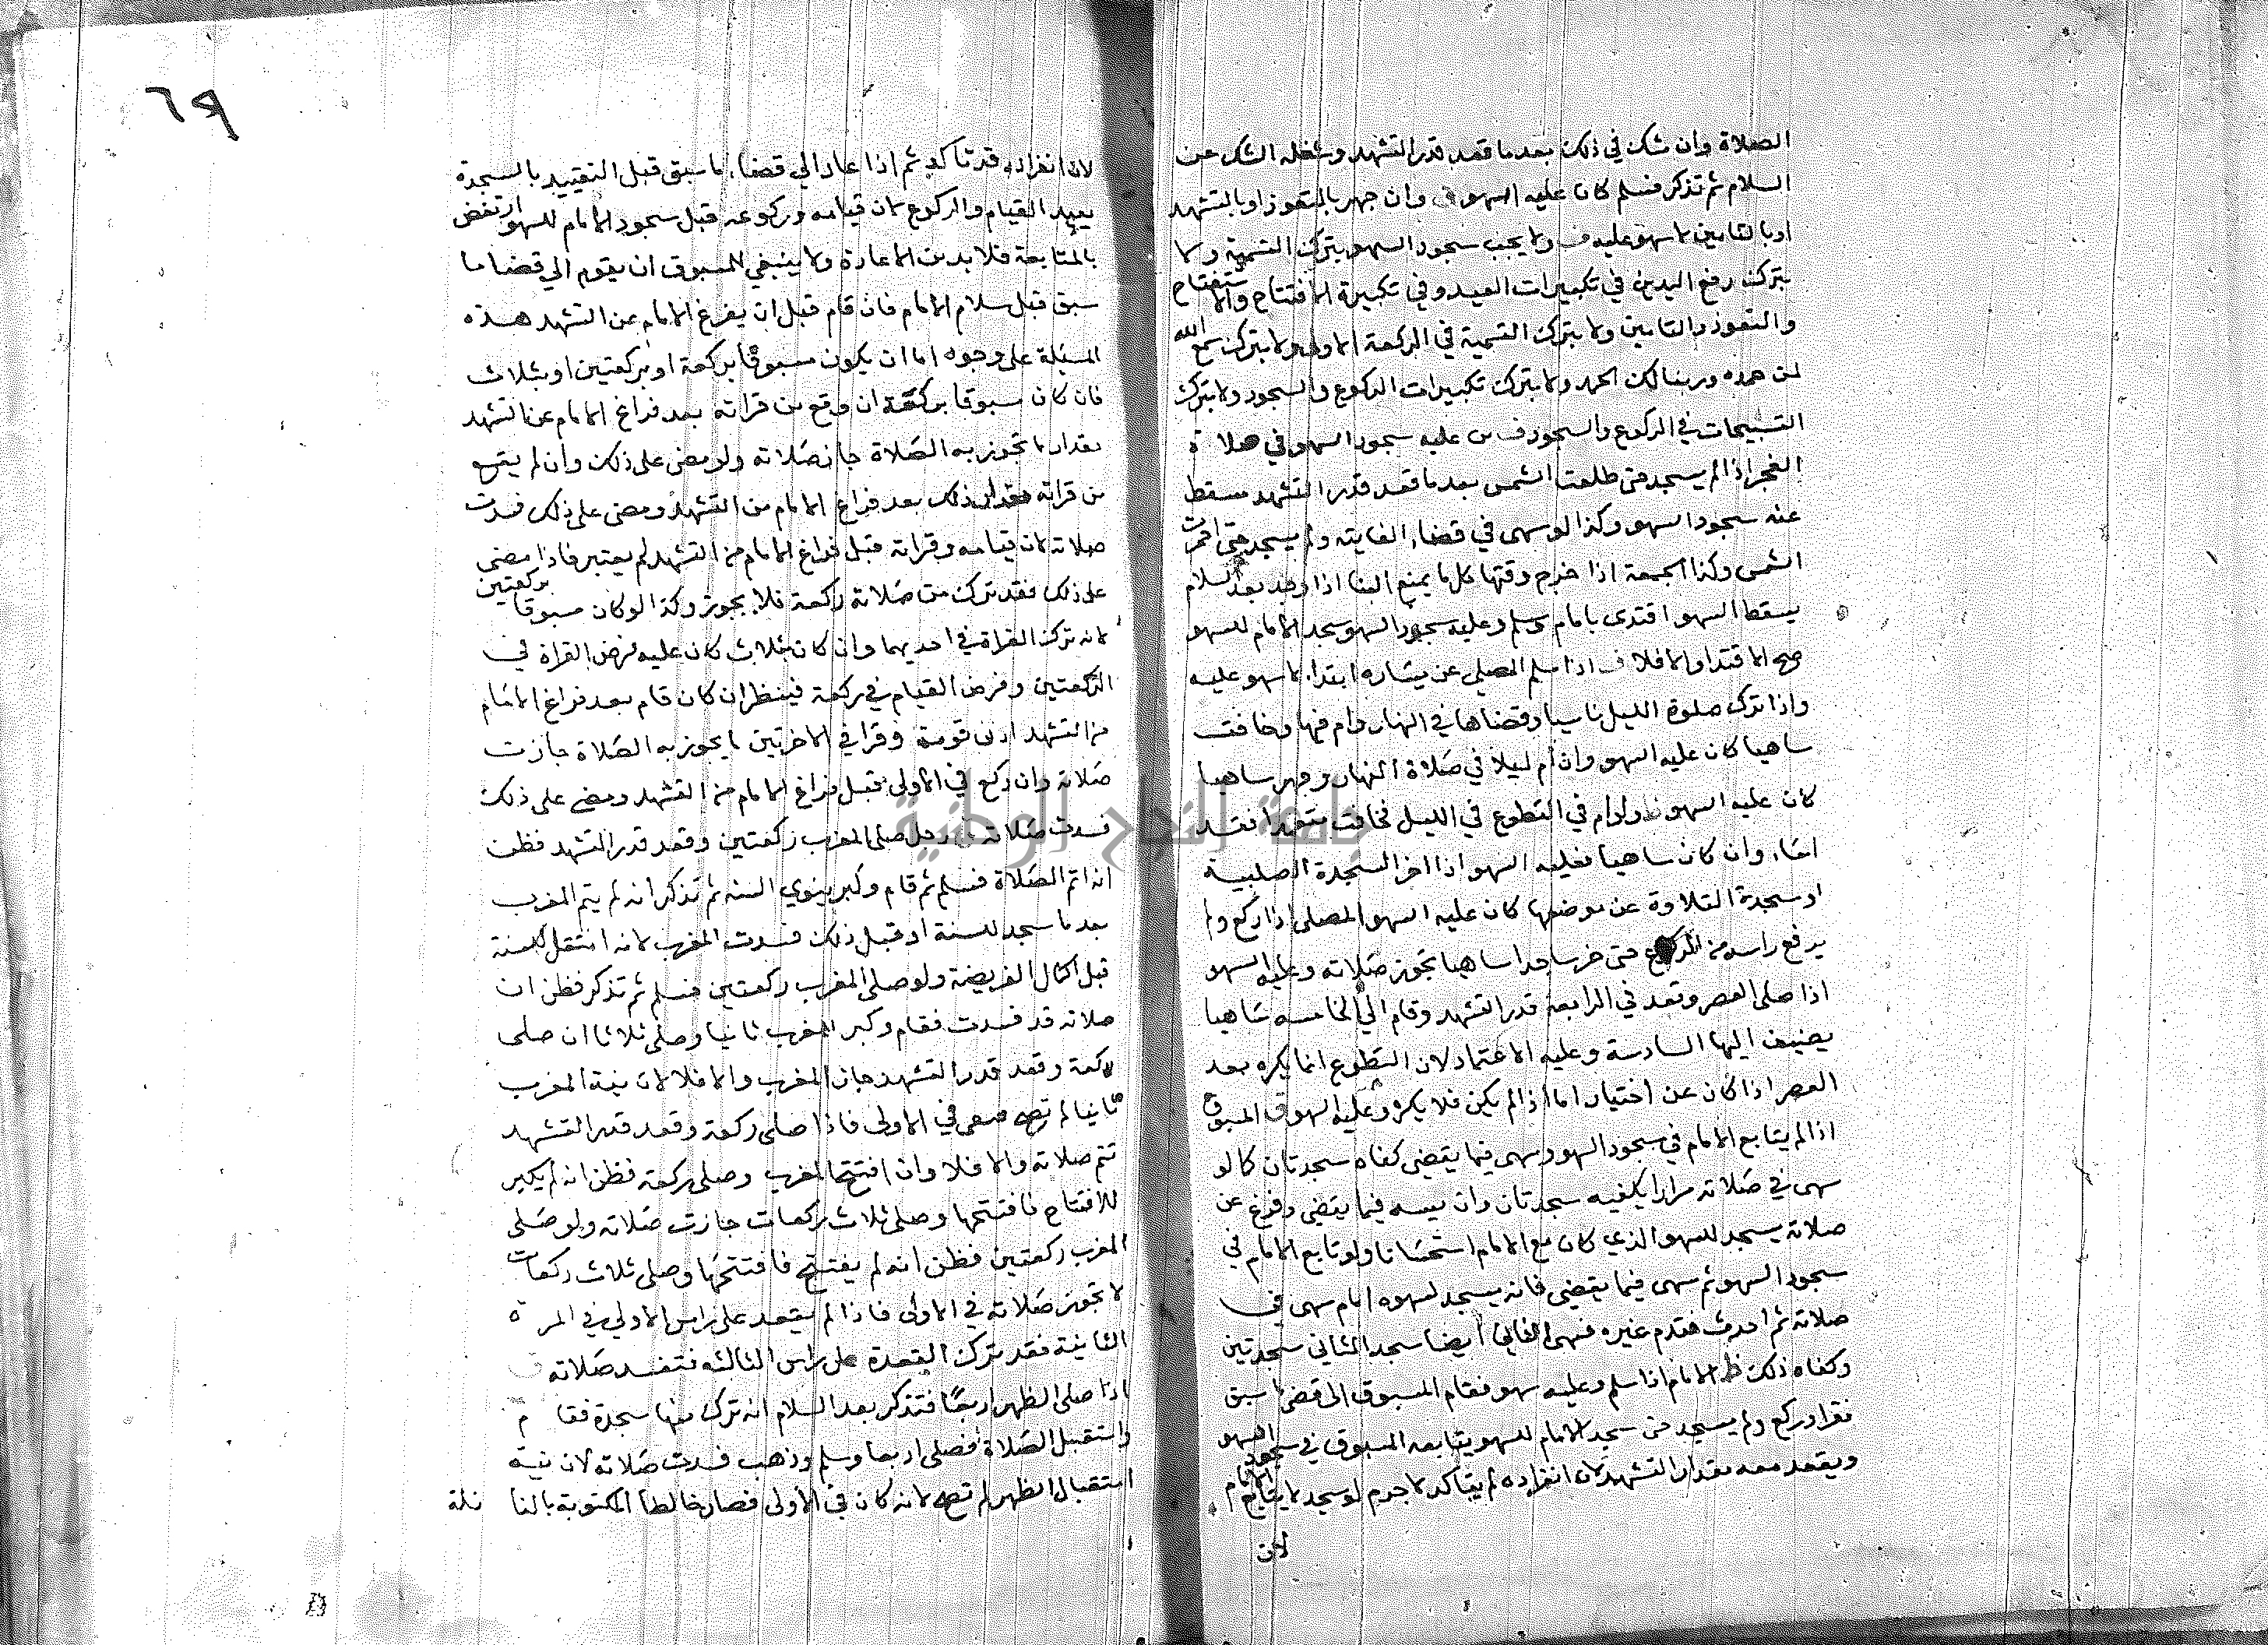 الصلاة وان شك في ذلك بعد ما قعد قدر التشهد وشغله الشك عن
السلام ثم تذكر فسلم كان عليه السهو ف وان جهر بالتعوذ او بالتشهد
او بالتامين لا سهو عليه ف ولا يجب سجود السهو بترك التسمية ولا
بترك رفع اليدين في تكبيرات العيد وفي تكبيرة الافتتاح والاستفتاح
والتعوذ والتامين ولا بترك التسمية في الركعة الاولى ولا بترك سمع الله
لمن حمده وربنا لك الحمد ولا بترك تكبيرات الركوع والسجود ولا بترك
التسبيحات في الركوع والسجود ف من عليه سجود السهو في صلاة
الفجر اذا لم يسجد حتى طلعت الشمس بعد ما قعد قدر التشهد سقط
عنه سجود السهو وكذا لو سهى في قضاء الفايته ولم يسجد حتى احمرت
الشمس وكذا الجمعة اذا خرج وقتها كل ما يمنع البنا اذا وجد بعد السلام
يسقط السهو اقتدى بامام سلم وعليه سجود السهو سجد الامام للسهو
صح الاقتدا والا فلا ف اذا سلم المصلي عن يساره ابتداء لا سهو عليه
واذا ترك صلوة الليل ناسيا وقضاها في النهار وام فيها وخافت
ساهيا كان عليه السهو وان ام ليلا في صلاة النهار وجهر ساهيا
كان عليه السهو ولو ام في التطوع في الليل فخافت متعمدا فقد
اساء وان كان ساهيا فعليه السهو اذا اخر السجدة الصلبية
او سجدة التلاوة عن موضعها كان عليه السهو المصلي اذا ركع ولم
يرفع راسه من الركوع حتى خر ساجدا ساهيا تجوز صلاته وعليه السهو
اذا صلى العصر وقعد في الرابعة قدر التشهد وقام الي الخامسه ساهيا
يضيف اليها السادسة وعليه الاعتماد لان التطوع انما يكره بعد
العصر اذا كان عن اختيار اما اذا لم يكن فلا يكره وعليه السهو ف المسبوق
اذا لم يتابع الامام في سجود السهو وسهى فيما يقضي كفاه سجدتان كما لو
سهى في صلاته مرارا يكفيه سجدتان وان لم يسه فيما يقضي وفرغ عن
صلاته يسجد للسهو الذي كان مع الامام استحسانا ولو تابع الامام في
سجود السهو ثم سهى فيما يقضي فانه يسجد لسهوه امام سهى في
صلاته ثم احدث فقدم غيره فسهى الثاني ايضا سجد الثاني سجدتين
وكفاه ذلك الامام اذا سلم وعليه سهو فقام المسبوق الى قضى ما سبق
فقرا وركع ولم يسجد حتى سجد الامام للسهو يتابعه المسبوق في سجود السهو
ويقعد معه مقدار التشهد لان انفراده لم يتأكد لا جرم لو سجد لا يتابع الامام
لان
٦٩
لان انفراده قد تأكد ثم اذا عاد الي قضاء ما سبق قبل التقييد بالسجدة
يعيد القيام والركوع لان قيامه وركوعه قبل سجود الامام للسهو ارتفض
بالمتابعة فلا بد من الاعادة ولا ينبغي للمسبوق ان يقوم الي قضا ما
سبق قبل سلام الامام فان قام قبل ان يفرغ الامام من التشهد هذه
المسئلة على وجوه اما ان يكون مسبوقا بركعة او بركعتين او بثلاث
فان كان مسبوقا بركعة ان وقع من قراته بعد فراغ الامام عن التشهد
مقدار ما تجوز به الصلاة جاز صلاته ولو مضى على ذلك وان لم يقع
من قراته مقدار ذلك بعد فراغ الامام من التشهد ومضى على ذلك فسدت
صلاته لان قيامه وقراته قبل فراغ الامام من التشهد لم يعتبر فاذا مضى
على ذلك فقد ترك من صلاته ركعة فلا يجوز وكذا لو كان مسبوقا بركعتين
لانه ترك القراة في احديهما وان كان بثلاث كان عليه فرض القراة في
الركعتين وفرض القيام في ركعة فينظر ان كان قام بعد فراغ الامام
من التشهد ادنى قومة وقرا في الاخرتين ما يجوز به الصلاة جازت
صلاته وان ركع في الاولى قبل فراغ الامام من التشهد ومضى على ذلك
فسدت صلاته رجل صلى المغرب ركعتين وقعد قدر التشهد فظن
انه اتم الصلاة فسلم ثم قام وكبر ينوي السنه ثم تذكر انه لم يتم المغرب
بعد ما سجد للسنة او قبل ذلك فسدت المغرب لانه انتقل للسنة
قبل اكمال الفريضة ولو صلى المغرب ركعتين فسلم ثم تذكر فظن ان
صلاته قد فسدت فقام وكبر المغرب ثانيا وصلى ثلاثا ان صلى
ركعة وقعد قدر التشهد جاز المغرب والا فلا لان نية المغرب
ثانيا لم تصح فبقى في الاولى فاذا صلى ركعة وقعد قدر التشهد
تتم صلاته والا فلا وان افتتح المغرب وصلى ركعة فظن انه لم يكبر
للافتتاح فافتتحها وصلى ثلاث ركعات جازت صلاته ولو صلى
المغرب ركعتين فظن انه لم يفتتح فافتتحها وصلى ثلاث ركعات
لا تجوز صلاته في الاولى فاذا لم يقعد على راس الاولي في المرة
الثانية فقد ترك القعدة على راس الثالثه فتفسد صلاته ف
اذا صلى الظهر اربعا فتذكر بعد السلام انه ترك منها سجدة فقام
واستقبل الصلاة فصلى اربعا وسلم وذهب فسدت صلاته لان نية
استقبال الظهر لم تصح لانه كان في الاولى فصار خالطا المكتوبة بالنافلة
جامعة النجاح الوطنية